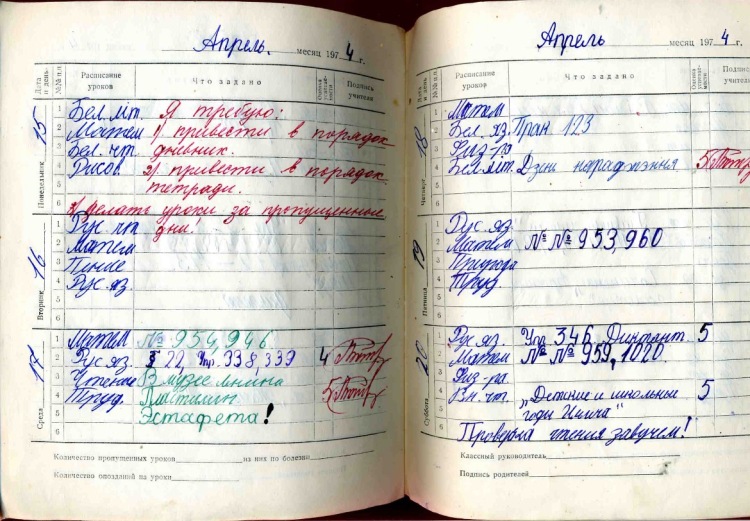 Апрель. месяц 1974 г.
Дата и день
№№ п.п.
Расписание уроков
Что задано
Оценка успевае-мости
Подпись учителя
Понедельник 15
1 Бел. літ. Я требую:
2 Матем 1) привести в порядок
3 Бел. чт. дневник.
4 Рисов. 2) привести в порядок
5 тетради.
6 3) делать уроки за пропущенные
Вторник 16
1 Рус чт дни!
2 Матем
3 Пение
4 Рус. яз.
5
6
Среда 17
1 Матем № 954, 946
2 Рус. яз. § 22, Упр. 338, 339 4
3 Чтение В музее Ленина
4 Труд. Пластилин 5
5 Эстафета!
6
Количество пропущенных уроков на них по болезни
Количество опозданий на уроки
Апрель месяц 1974 г.
Дата и день
№№ п.п.
Расписание уроков
Что задано
Оценка успевае-мости
Подпись учителя
Четверг 18
1 Матем
2 Бел. яз. Пран 123
3 Физ-ра
4 Бел. літ. Дзень нараджэння 5
5
6
Пятница 19
1 Рус. яз.
2 Матем №№ 953, 960
3 Природа
4 Труд
5
6
Суббота 20
1 Рус. яз. Упр. 346. Диктант 5
2 Матем №№ 959, 1020
3 Физ-ра
4 Вн. чт. „Детские и школьные 5
5 годы Ильича"
6 Проверка чтения завучем!
Классный руководитель
Подпись родителей